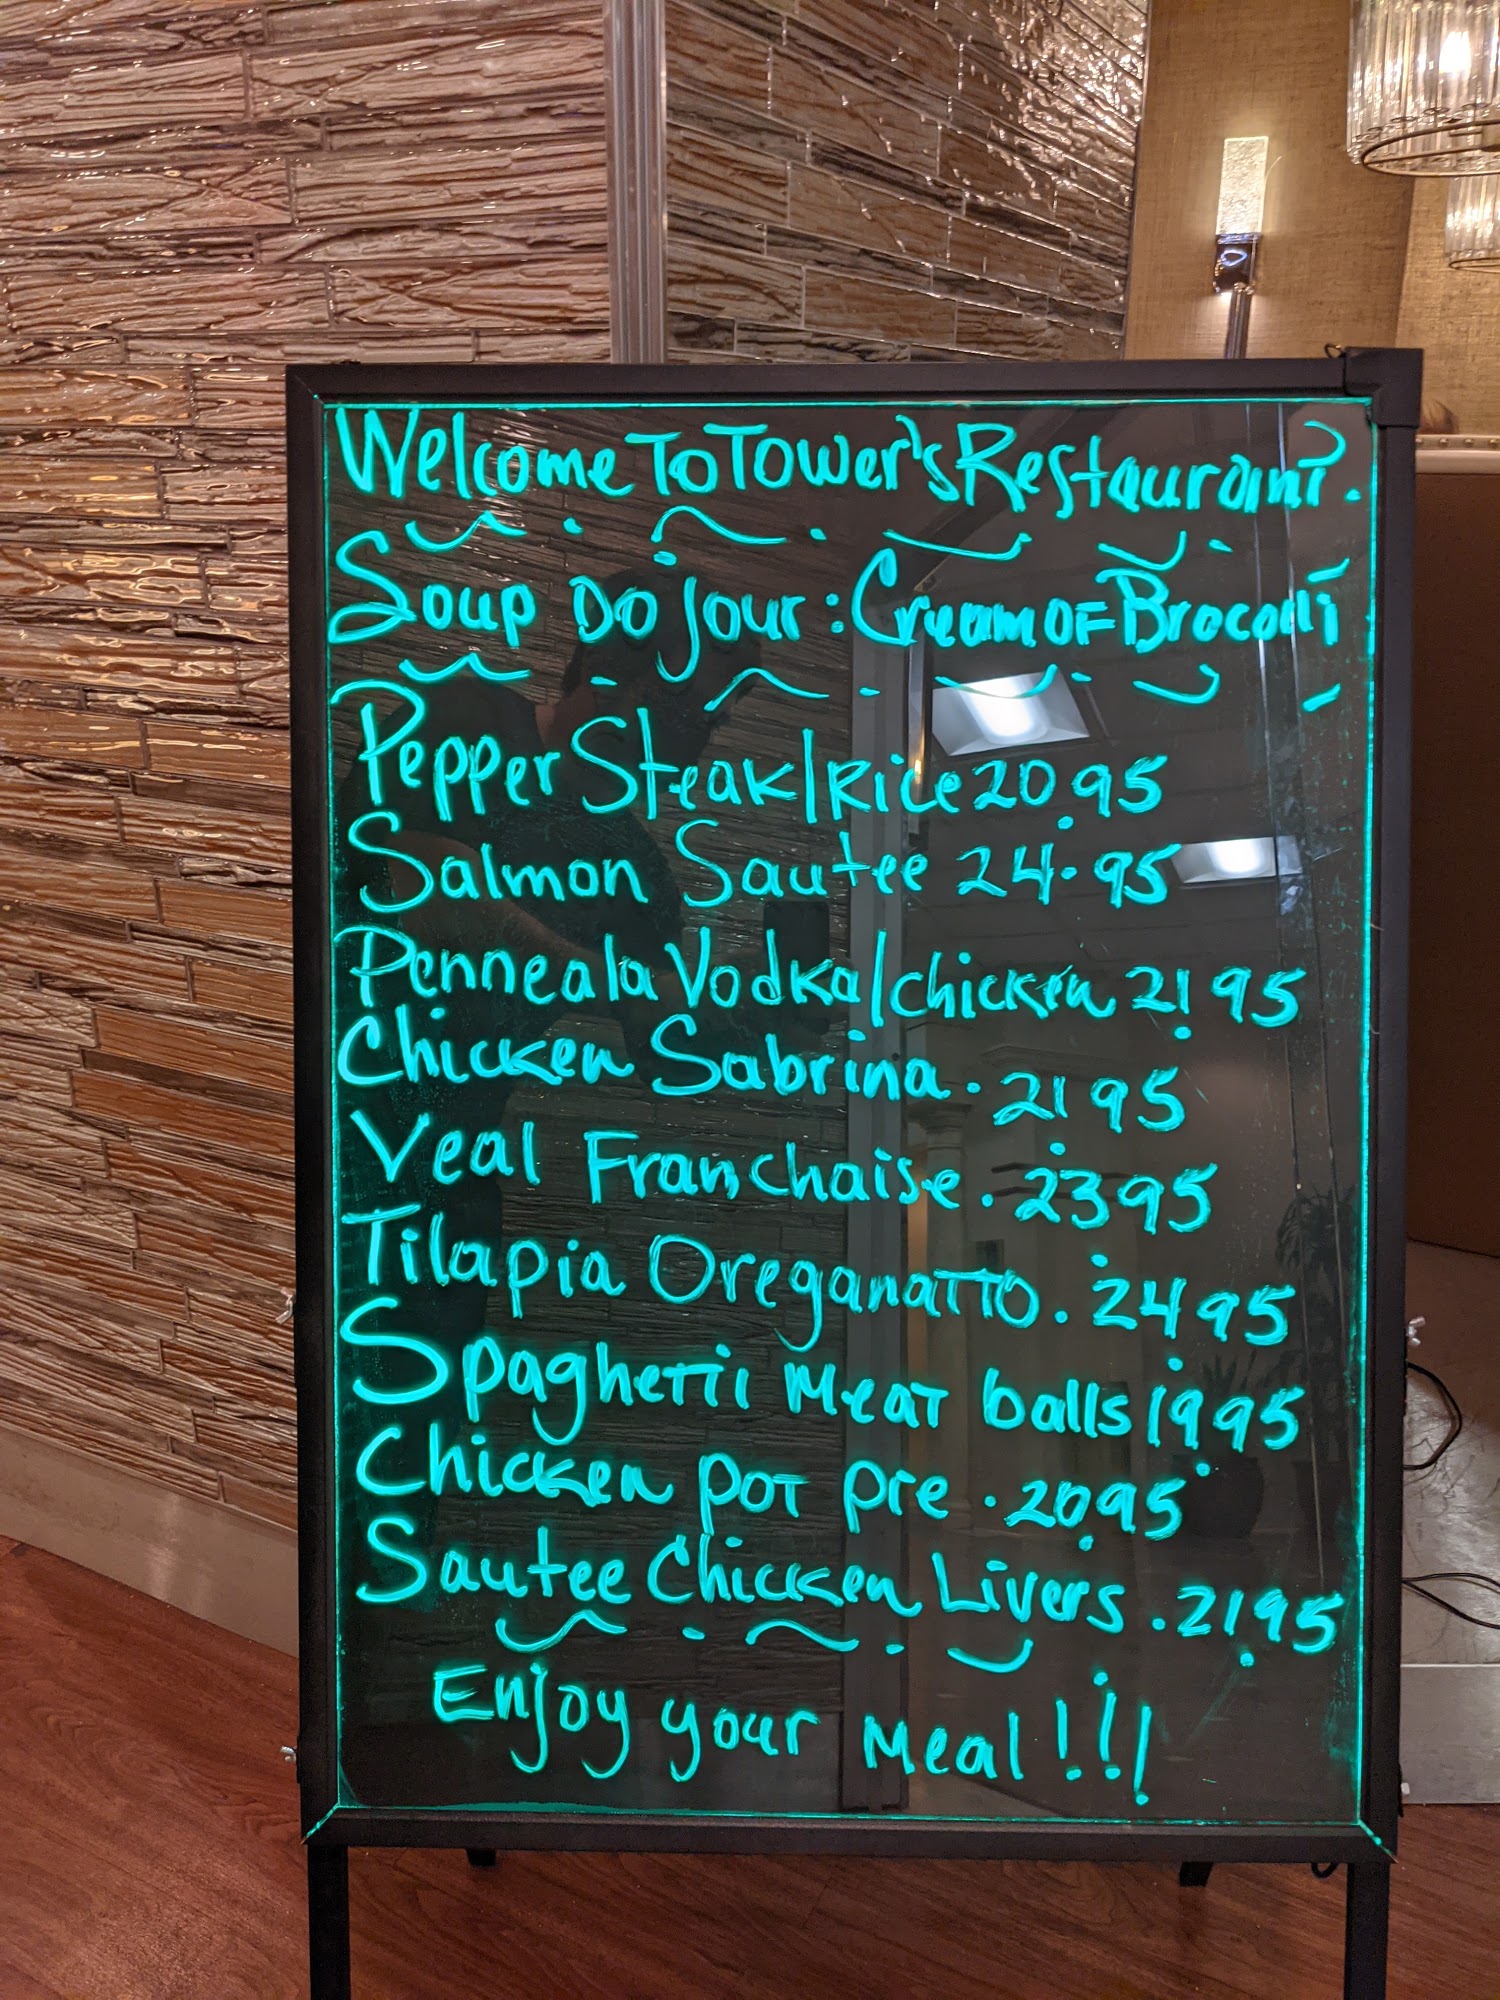 Welcome To Tower's Restaurant.
Soup Do Jour: Cream OF Brocolli
Pepper Steak/Rice 20.95
Salmon Sautee 24.95
Penneala Vodka/chicken 21.95
Chicken Sabrina. 21.95
Veal Franchaise. 23.95
Tilapia Oreganatto. 24.95
Spaghetti Meat balls 19.95
Chicken pot pie. 20.95
Sautee Chicken Livers. 21.95
Enjoy your Meal!!!